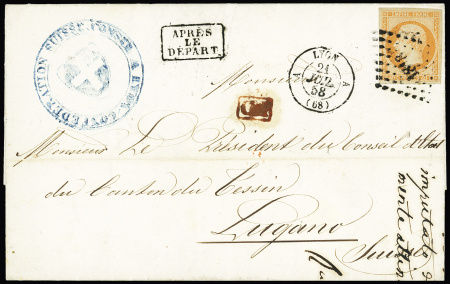 APRÈS
LE
DÉPART.
LYON
21
JUIL
58
(68)
A
A
EMPIRE FRANC
CONFÉDÉRATION SUISSE
Monsieur
Monsieur Le Président du Conseil d'Etat
du Canton du Tessin
Lugano
Suisse
imputato
mente